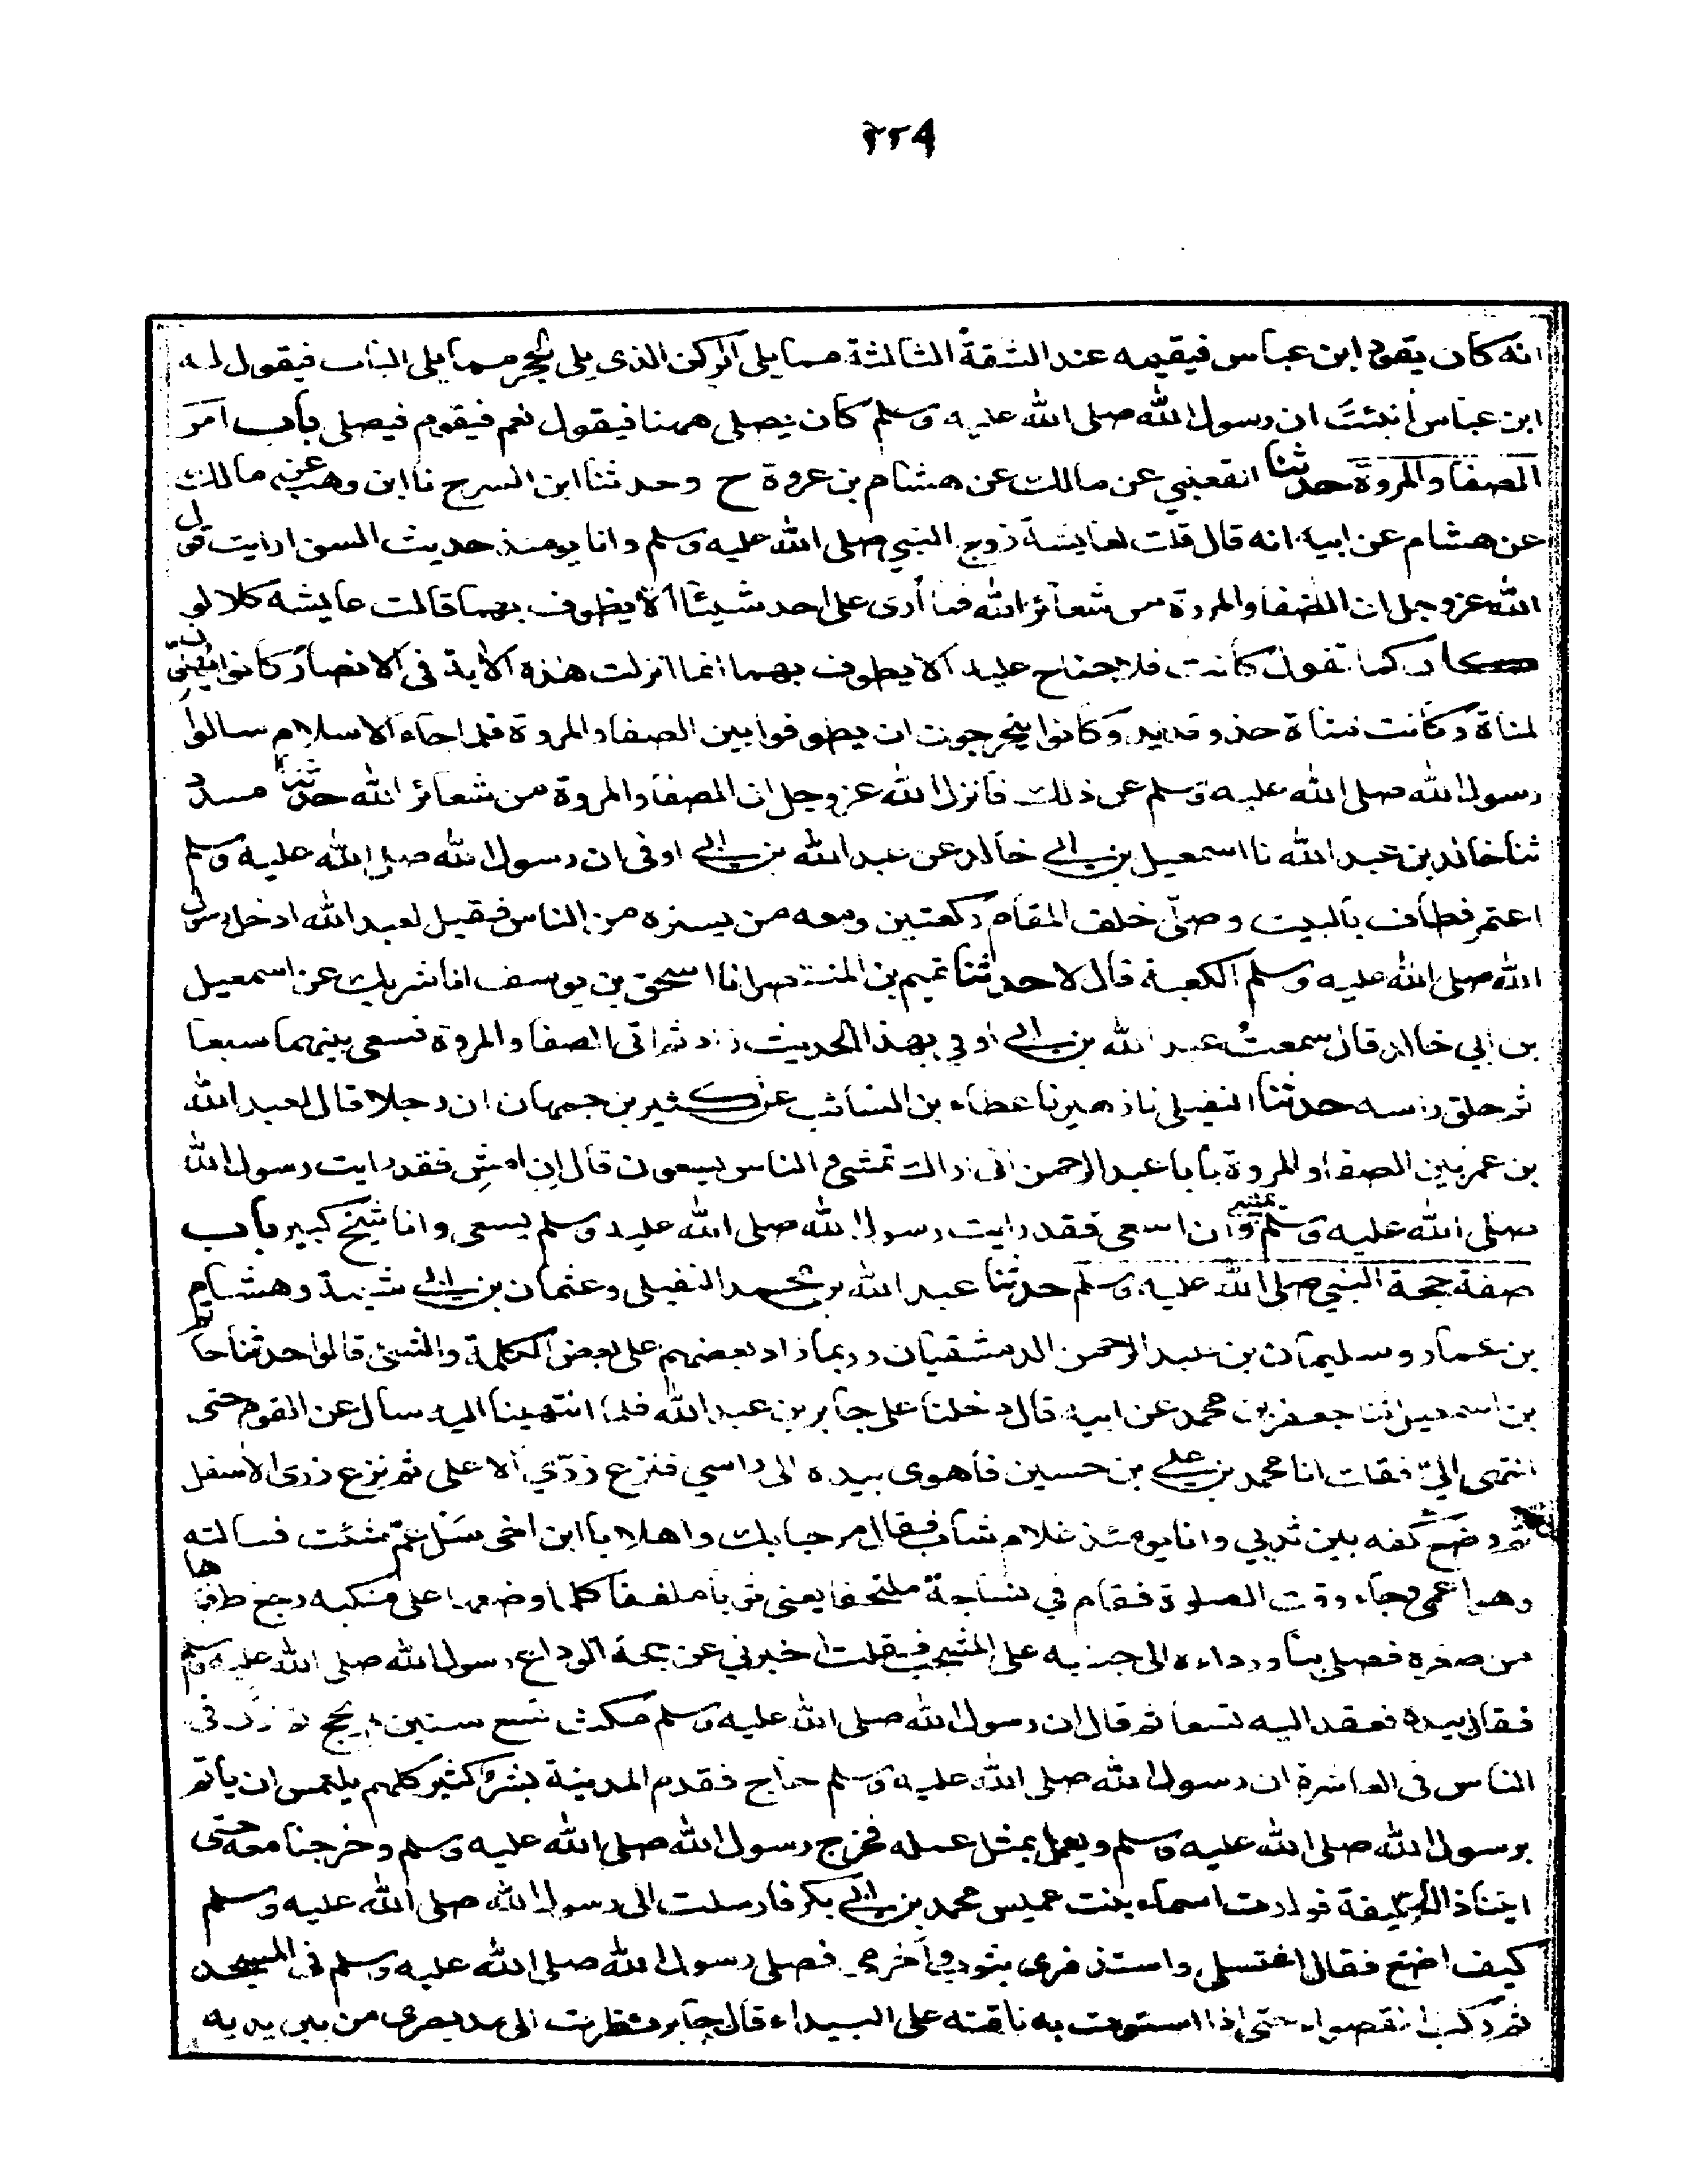 ٢٢٩
انه كان يقود ابن عباس فيقيمه عند الشقة الثالثة مما يلى الركن الذى يلى الحجر مما يلى الباب فيقول له
ابن عباس أنبئت ان رسول الله صلى الله عليه وسلم كان يصلى ههنا فيقول نعم فيقوم فيصلى باب امر
الصفا والمروة حدثنا القعنبي عن مالك عن هشام بن عروة ح وحدثنا ابن السرح نا ابن وهب عن مالك
عن هشام عن ابيه انه قال قلت لعايشة زوج النبي صلى الله عليه وسلم وانا يومئذ حديث السن ارايت قول
الله عز وجل ان الصفا والمروة من شعائر الله فما أرى على احد شيئا ألا يطوف بهما قالت عايشه كلا لو
كان كما تقول كانت فلا جناح عليه الا يطوف بهما انما انزلت هذه الاية فى الانصار كانوا يهلون
لمناة وكانت مناة حذو قديد وكانوا يتحرجون ان يطوفوا بين الصفا والمروة فلما جاء الاسلام سالوا
رسول الله صلى الله عليه وسلم عن ذلك فانزل الله عز وجل ان الصفا والمروة من شعائر الله حدثنا مسدد
ثنا خالد بن عبد الله نا اسمعيل بن ابي خالد عن عبد الله بن ابي اوفى ان رسول الله صلى الله عليه وسلم
اعتمر فطاف بالبيت وصلى خلف المقام ركعتين ومعه من يستره من الناس فقيل لعبد الله ادخل رسول
الله صلى الله عليه وسلم الكعبة قال لا حدثنا تميم بن المنتصر انا اسحق بن يوسف انا شريك عن اسمعيل
بن ابي خالد قال سمعتُ عبد الله بن ابي اوفى بهذا الحديث زاد ثم اتى الصفا والمروة فسعى بينهما سبعا
ثم حلق راسه حدثنا النفيلى نا زهير نا عطاء بن السائب عن كثير بن جمهان ان رجلا قال لعبد الله
بن عمر بين الصفا والمروة يا با عبد الرحمن انى اراك تمشى والناس يسعون قال إن امشِ فقد رايت رسول الله
صلى الله عليه وسلم يمشى وان اسعى فقد رايت رسول الله صلى الله عليه وسلم يسعى وانا شيخ كبير باب
صفة حجة النبي صلى الله عليه وسلم حدثنا عبد الله بن محمد النفيلى وعثمان بن ابي شيبة وهشام
بن عمار وسليمان بن عبد الرحمن الدمشقيان وربما زاد بعضهم على بعض الكلمة والشئ قالوا حدثنا حاتم
بن اسمعيل نا جعفر بن محمد عن ابيه قال دخلنا على جابر بن عبد الله فلما انتهينا اليه سال عن القوم حتى
انتهى اليّ فقلت انا محمد بن علي بن حسين فاهوى بيده الى راسي فنزع زرّي الاعلى ثم نزع زرى الاسفل
ثم وضع كفه بين ثديي وانا يومئذ غلام شاب فقال مرحبا بك واهلا يا ابن اخى سَل عمّ شئت فسالته
وهو اعمى وجاء وقت الصلوة فقام في نساجة ملتحفا يعنى ثوبا ملفقا كلما وضعها على منكبه رجع طرفاها
من صغره فصلى بنا ورداءه الى جنبه على المشجب فقلت اخبرني عن حجة الوداع رسول الله صلى الله عليه وسلم
فقال بيده فعقد اليه تسعا ثم قال ان رسول الله صلى الله عليه وسلم مكث تسع سنين لم يحج ثم اذن فى
الناس فى العاشرة ان رسول الله صلى الله عليه وسلم حاج فقدم المدينة بشر كثير كلهم يلتمس ان ياتم
برسول الله صلى الله عليه وسلم ويعمل بمثل عمله فخرج رسول الله صلى الله عليه وسلم وخرجنا معه حتى
اتينا ذا الحليفة فولدت اسماء بنت عميس محمد بن ابي بكر فارسلت الى رسول الله صلى الله عليه وسلم
كيف اصنع فقال اغتسلى واستذفرى بثوب واحرمى فصلى رسول الله صلى الله عليه وسلم فى المسجد
ثم ركب القصواء حتى اذا استوت به ناقته على البيداء قال جابر نظرت الى مد بصرى من بين يديه